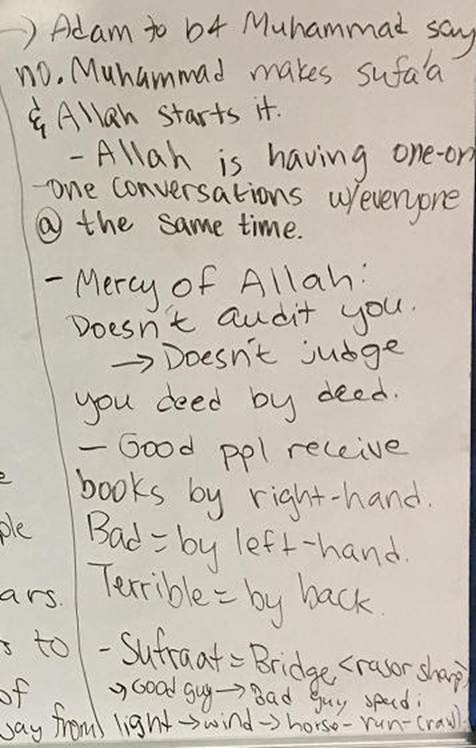 → Adam to b4 Muhammad say
no. Muhammad makes sufa'a
& Allah starts it.
- Allah is having one-on
-one conversations w/everyone
@ the same time.
- Mercy of Allah:
Doesn't audit you.
→ Doesn't judge
you deed by deed.
- Good ppl receive
books by right-hand.
Bad = by left-hand.
Terrible = by back.
ple
ars.
s to
- Sufraat = Bridge <rasor sharp>
of
→ Good guy → Bad guy speed:
way from
light → wind → horse - run - crawl.